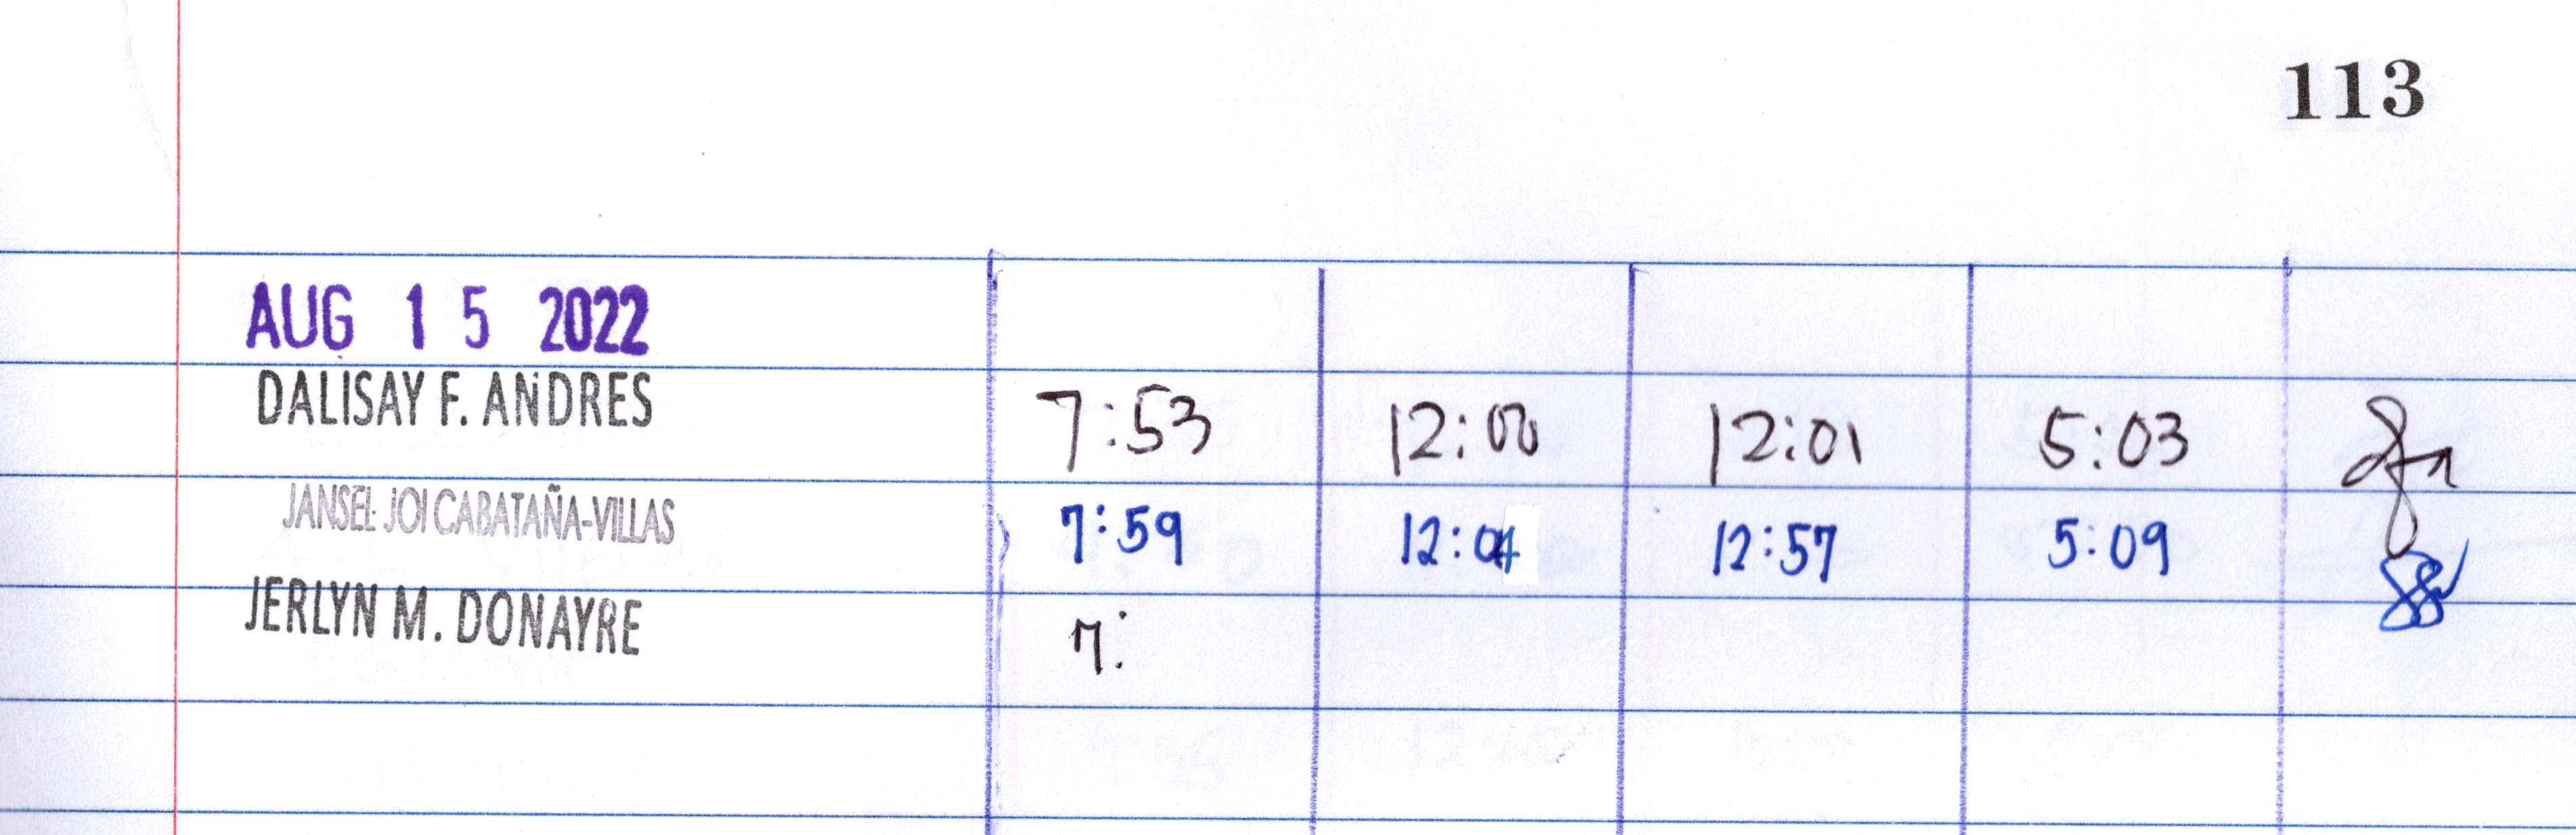 113
AUG 15 2022
DALISAY F. ANDRES 7:53 12:00 12:01 5:03
JANSEL JOI CABATAÑA-VILLAS 7:59 12:04 12:57 5:09
JERLYN M. DONAYRE 7: